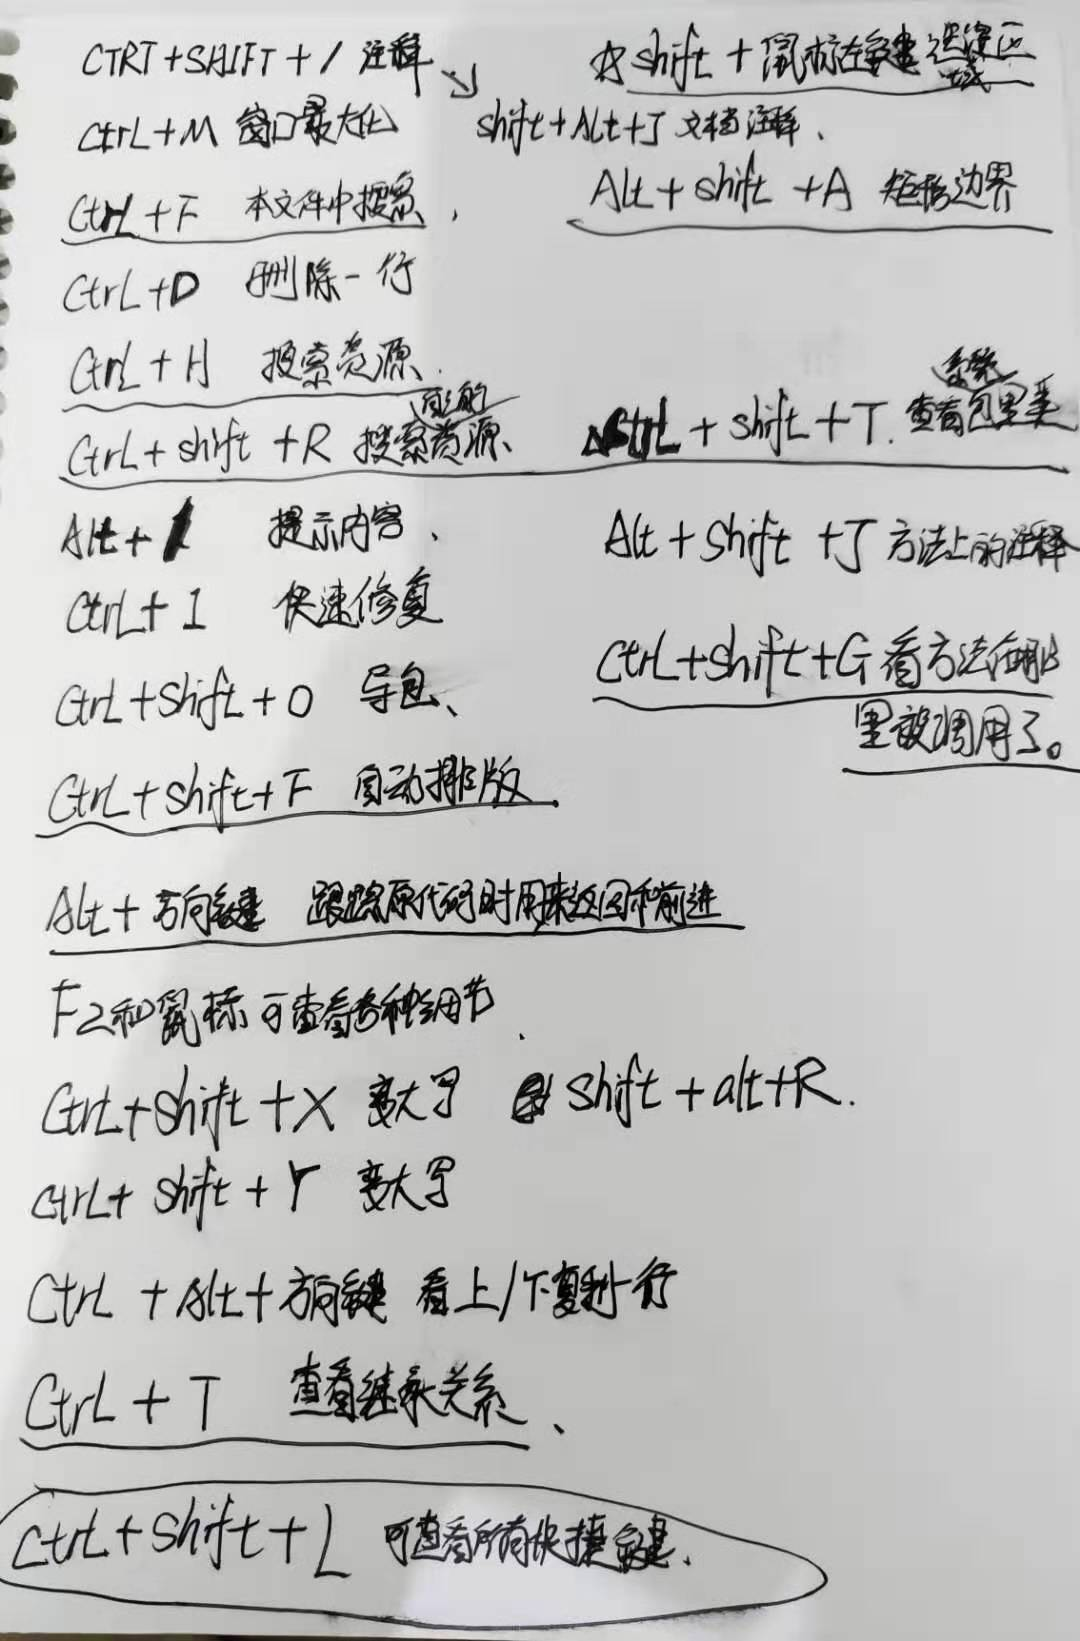 CTRT+SHIFT+/ 注释
☆shift+鼠标左键建选择区域
CtrL+M 窗口最大化
shift+ALt+J 文档注释、
CtrL+F 本文件中搜索、
ALt+shift+A 矩形边界
CtrL+D 删除一行
CtrL+H 搜索资源
CtrL+shift+R 搜索自己的资源、
CtrL+shift+T. 查看系统包里类
ALt+/ 提示内容、
ALt+Shift+J 方法上的注释
CtrL+1 快速修复
CtrL+Shift+O 导包、
CtrL+shift+G 看方法在哪
里被调用了。
CtrL+shift+F 自动排版.
ALt+方向键 跟踪原代码时用来返回和前进
F2和鼠标可查看各种细节.
CtrL+Shift+X 变大写 Shift+alt+R.
ctrL+shift+Y 变大写
CtrL+ALt+方向键 看上/下复制一行
CtrL+T 查看继承关系、
CtrL+Shift+L 可查看所有快捷键、